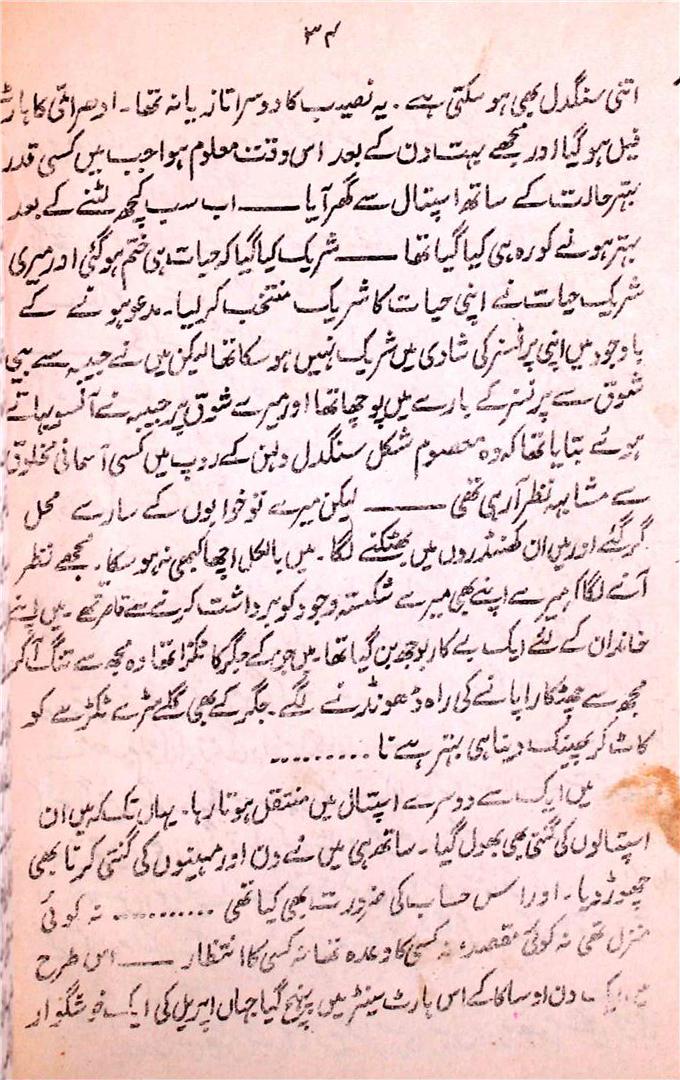 ۳۴
اتنی سنگدل بھی ہو سکتی ہے۔ یہ نصیب کا دوسرا تازیانہ تھا۔ ادھر امّی کا ہارٹ
فیل ہو گیا اور مجھے بہت دن کے بعد اس وقت معلوم ہوا جب میں کسی قدر
بہتر حالت کے ساتھ اسپتال سے گھر آیا ــــــ اب سب کچھ لٹنے کے بعد
بہتر ہونے کو رہ ہی کیا گیا تھا ــــــ شریک کیا گیا کہ حیات ہی ختم ہو گئی اور میری
شریک حیات نے اپنی حیات کا شریک منتخب کر لیا۔ مدعو ہونے کے
باوجود میں اپنی پرنسز کی شادی میں شریک نہیں ہو سکا تھا لیکن میں نے حبیبہ سے
شوق سے پرنسز کے بارے میں پوچھا تھا اور میرے شوق پر حبیبہ نے آنسو بہاتے
ہوئے بتایا تھا کہ وہ معصوم شکل سنگدل دلہن کے روپ میں کسی آسمانی مخلوق
سے مشابہہ نظر آ رہی تھی ــــــ لیکن میرے تو خوابوں کے سارے محل
گر گئے اور میں ان کھنڈروں میں بھٹکنے لگا۔ میں بالکل اچھا کبھی نہ ہو سکا۔ مجھے نظر
آنے لگا کہ میرے اپنے بھی میرے شکستہ وجود کو برداشت کرنے سے قاصر تھے۔ میں اپنے
خاندان کے لئے ایک بے کار بوجھ بن گیا تھا۔ میں جن کے جگر کا ٹکڑا تھا وہ مجھ سے تنگ آ کر
مجھ سے چھٹکارا پانے کی راہ ڈھونڈنے لگے۔ جگر کے بھی گلے سڑے ٹکڑے کو
کاٹ کر پھینک دینا ہی بہتر ہے نا ۔۔۔۔۔۔۔۔۔
میں ایک سے دوسرے اسپتال میں منتقل ہوتا رہا۔ یہاں تک کہ میں ان
اسپتالوں کی گنتی بھی بھول گیا۔ ساتھ ہی میں نے دن اور مہینوں کی گنتی کرنا بھی
چھوڑ دیا۔ اور اس حساب کی ضرورت بھی کیا تھی ۔۔۔۔۔۔۔۔۔ نہ کوئی
منزل تھی نہ کوئی مقصد، نہ کسی کا وعدہ تھا نہ کسی کا انتظار ــــــ اس طرح
میں ایک دن اوساکا کے اس ہارٹ سینٹر میں پہنچ گیا جہاں اپریل کی ایک خوشگوار